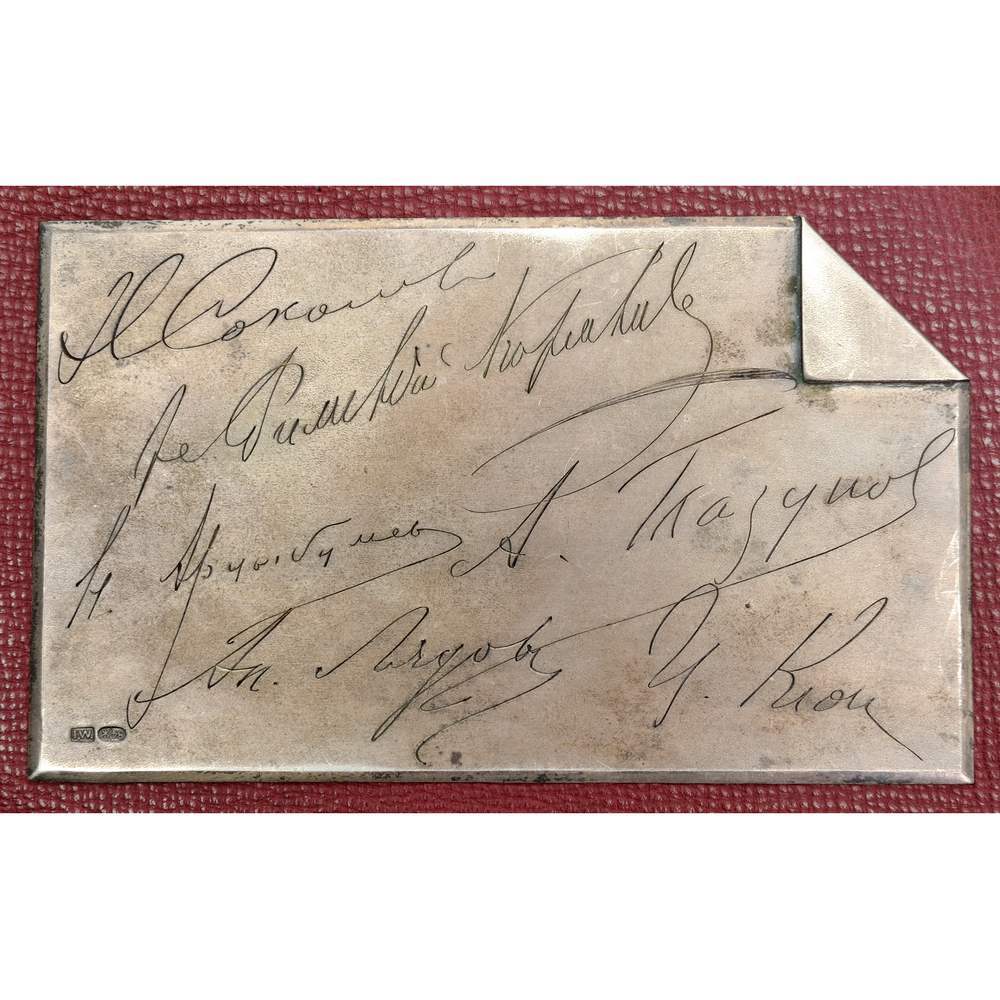 Н Соколовъ
Н. Римскій Корсаковъ
Н. Арцыбушевъ
А. Глазуновъ
Ан. Лядовъ
Ц. Кюи
IW